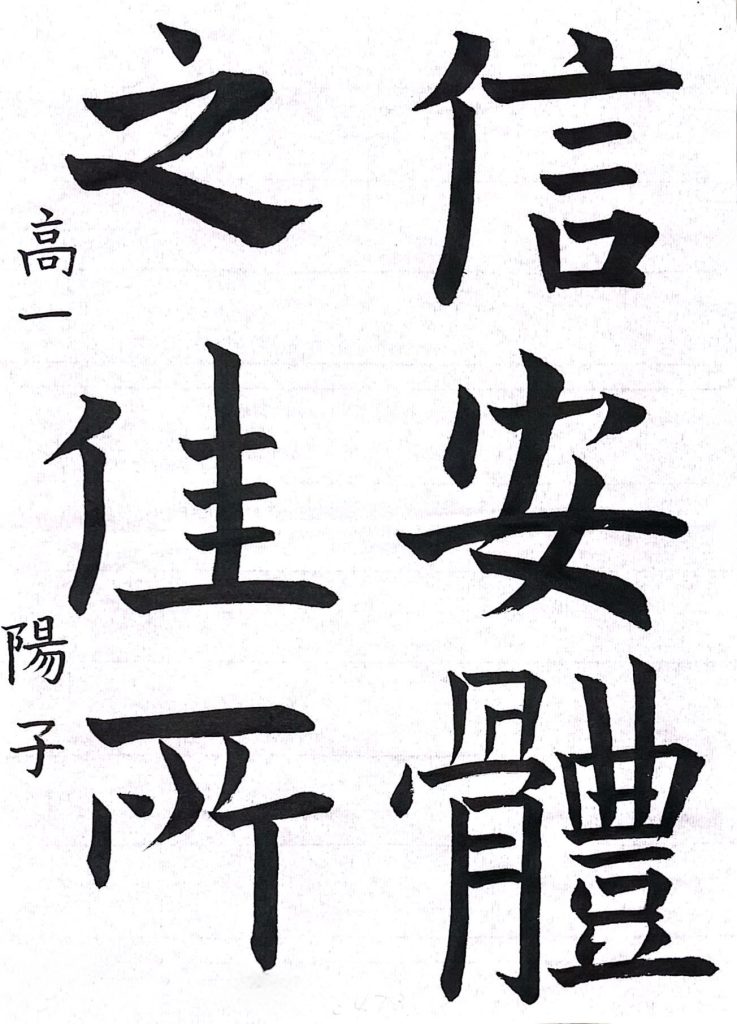 信安體
之佳所
高一 陽子